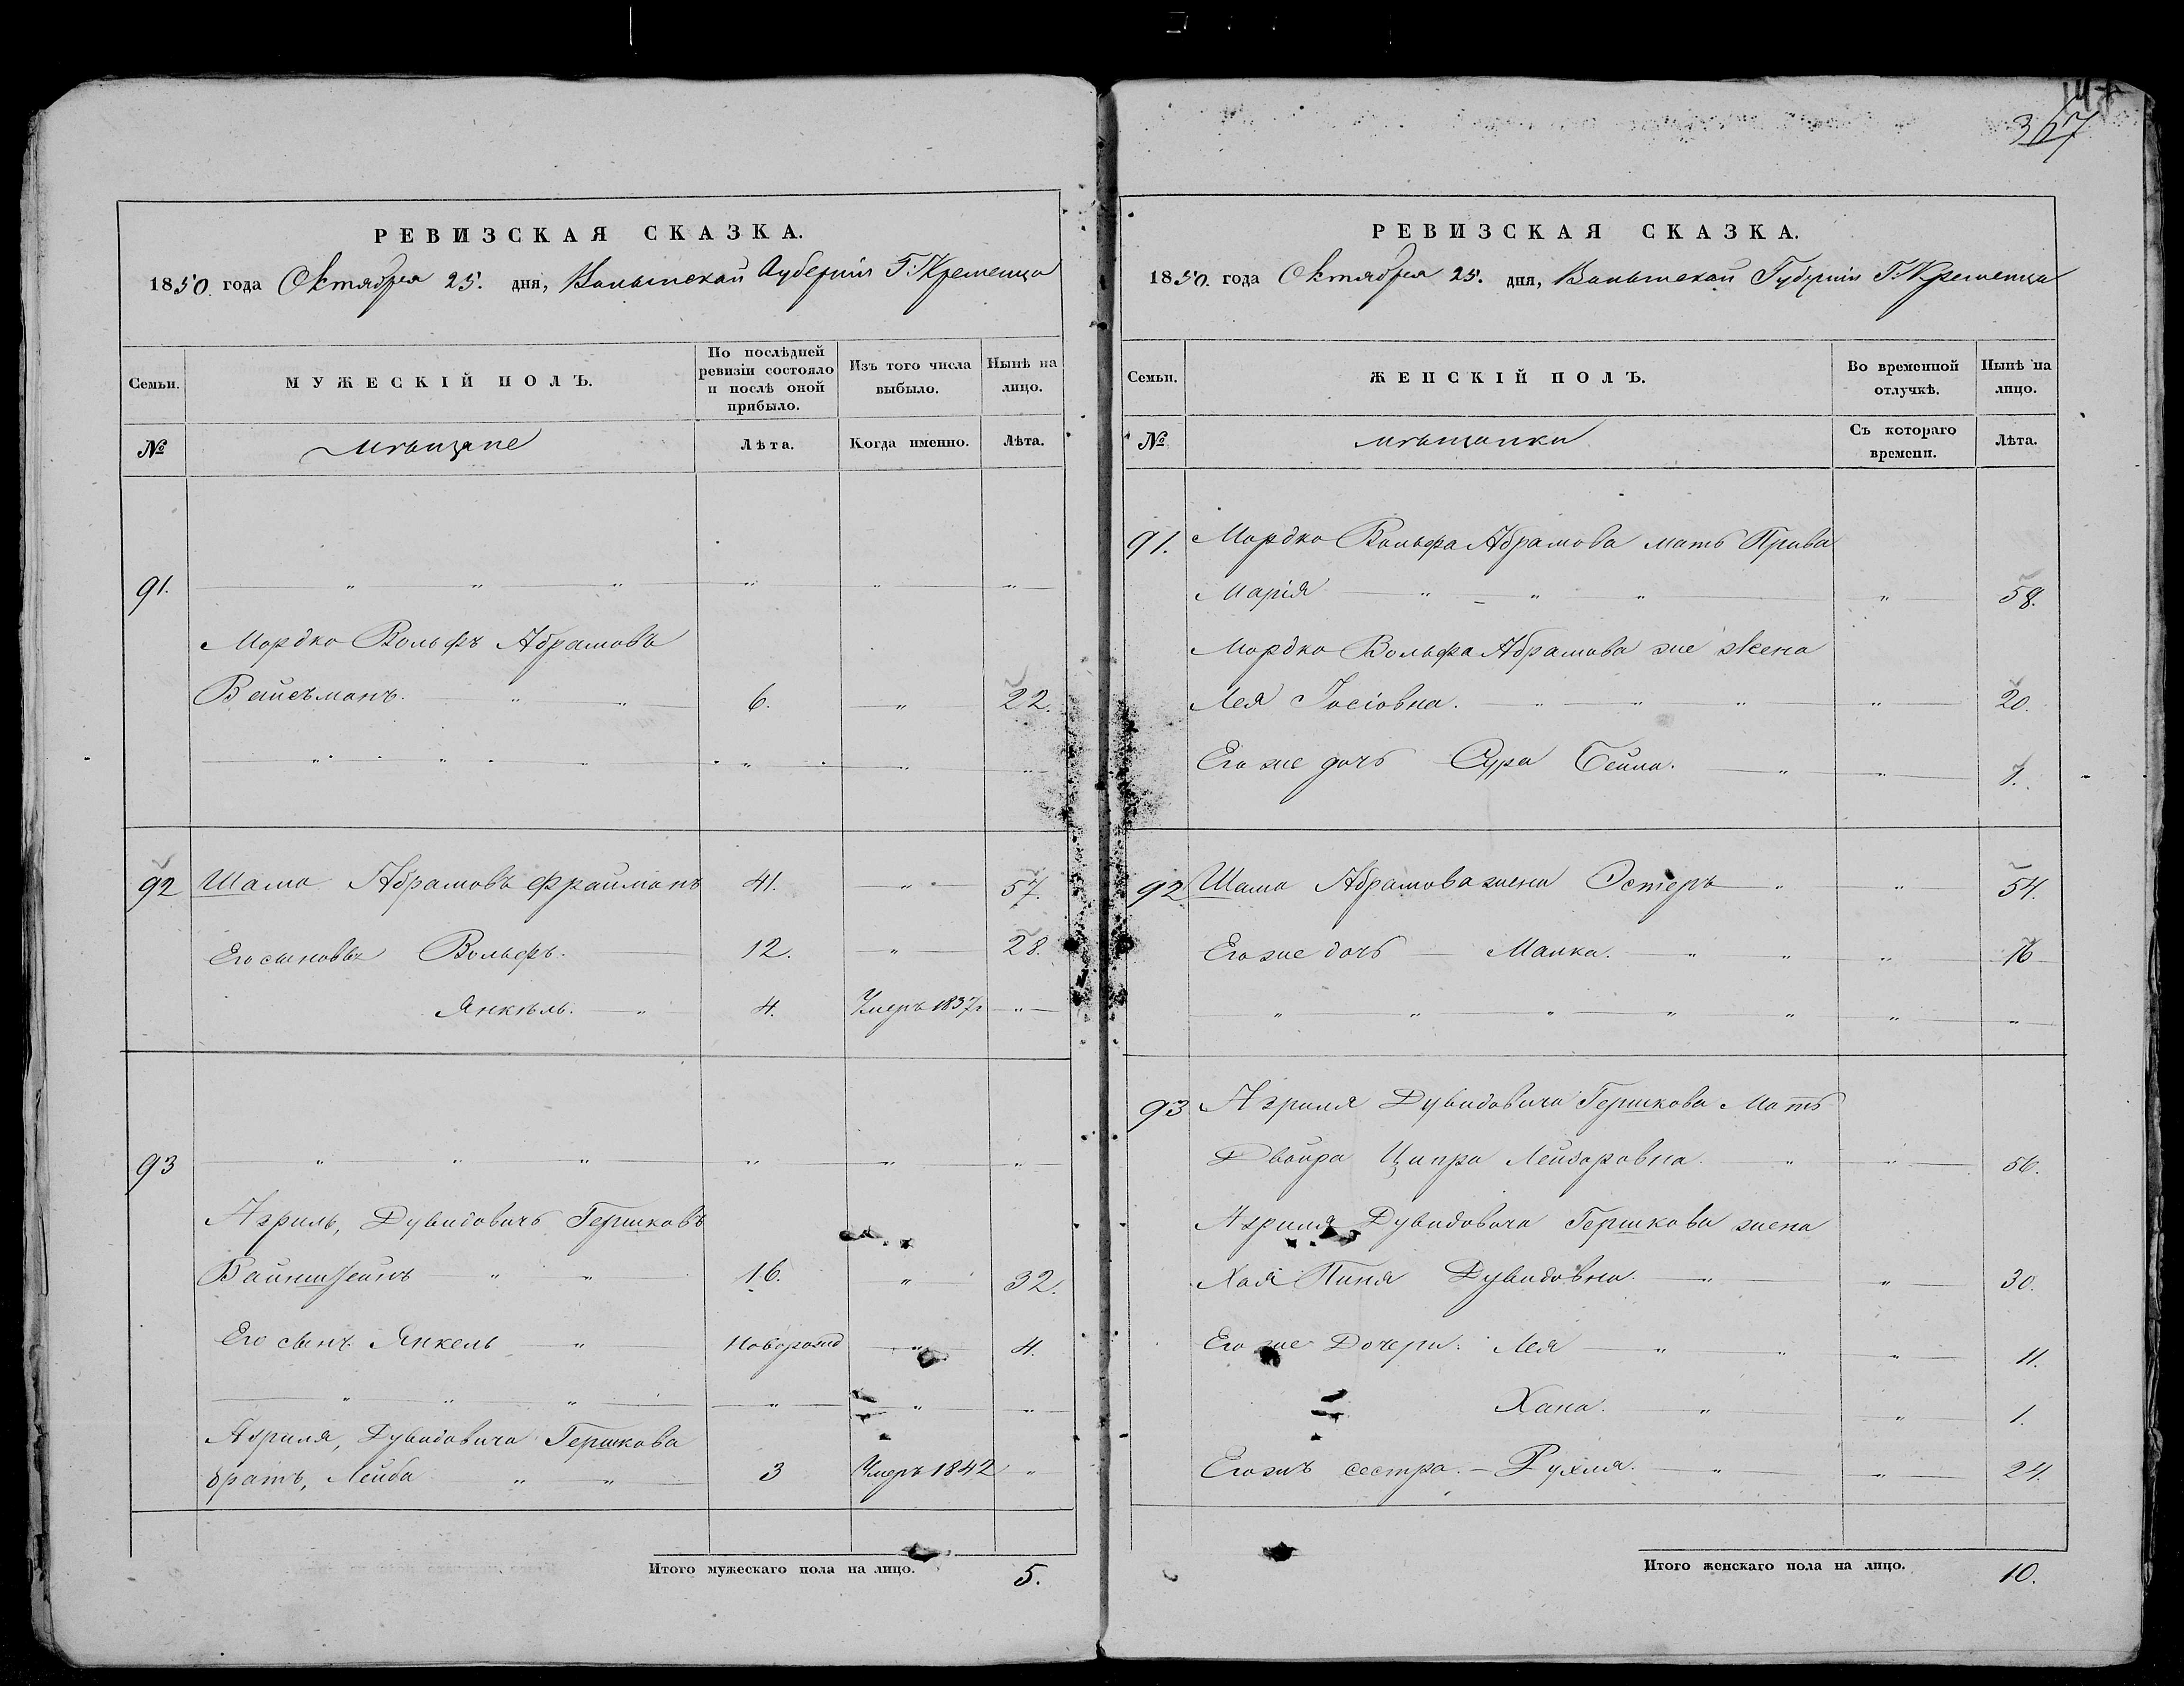 367
РЕВИЗСКАЯ СКАЗКА.
1850 года Октября 25. дня, Волынской Губернии Г. Кременца
Семьи. МУЖЕСКІЙ ПОЛЪ. По послѣдней ревизіи состояло и послѣ оной прибыло. Изъ того числа выбыло. Нынѣ на лицо.
№ Мѣщане Лѣта. Когда именно. Лѣта.
91. " " " " " "
Мордко Вольфъ Абрамовъ
Вайсъманъ. " " 6. " 22.
" " " " " "
92 Шама Абрамовъ Фрайманъ 41. " 57.
Его сыновья Вольфъ. 12. " 28.
Янкель. " 4. Умеръ 1837г "
93 " " " " " "
Азриль, Дувидовичъ Гершковъ
Вайнштейнъ " " 16. " 32.
Его сынъ Янкель " Новорожд " 4.
" " " " " "
Азриля, Дувидовича Гершкова
братъ, Лейба " " 3 Умеръ 1842 "
Итого мужескаго пола на лицо. 5.
РЕВИЗСКАЯ СКАЗКА.
1850. года Октября 25. дня, Волынской Губерніи Г. Кременца
Семьи. ЖЕНСКІЙ ПОЛЪ. Во временной отлучкѣ. Нынѣ на лицо.
№ мѣщанки Съ котораго времени. Лѣта.
91. Мордко Вольфа Абрамова мать Прива
Марія " " " " 58.
Мордко Вольфа Абрамова же жена
Лея Іосіовна. " " " " 20.
Его же дочь Сура Бейла. " " 1.
92 Шама Абрамова жена Эстеръ " " 54.
Его же дочь Малка. " " " 16
" " " " " " "
93 Азриля Дувидовича Гершкова Мать
Двойра Ципра Лейзоровна. " " 56.
Азриля Дувидовича Гершкова жена
Хая Пиня Дувидовна. " " 30.
Его же Дочери: Лея " " " 11.
Хана. " " 1.
Его жъ сестра. Рухля. " " 24.
Итого женскаго пола на лицо. 10.